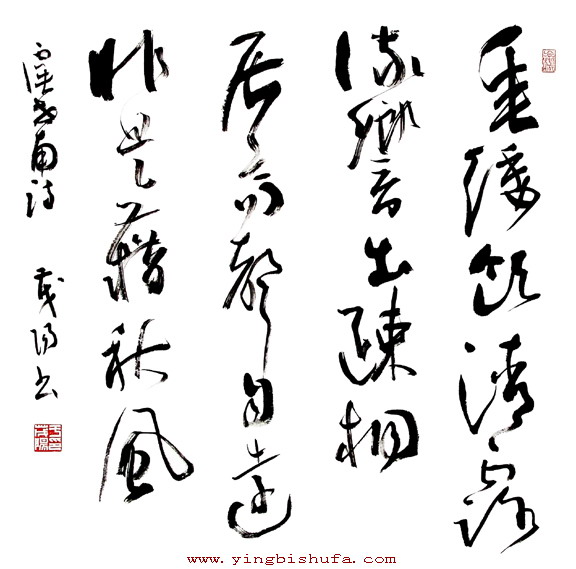 垂緌饮清露
流響出踈桐
居高聲自遠
非是藉秋風
虞世南詩 茂陽书
www.yingbishufa.com